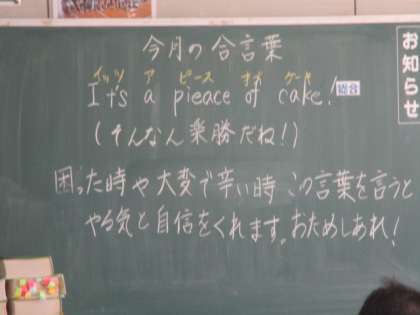 今月の合言葉
イッツ ア ピース オブ ケーキ
It's a pieace of cake!
総合
(そんなん楽勝だね!)
困った時や大変で辛い時この言葉を言うと
やる気と自信をくれます。おためしあれ!
お知らせ